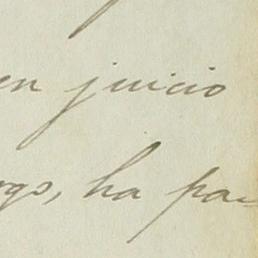 en juicio
ha pa